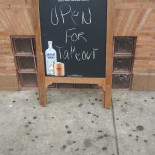 OPEN
FOR
TakeouT